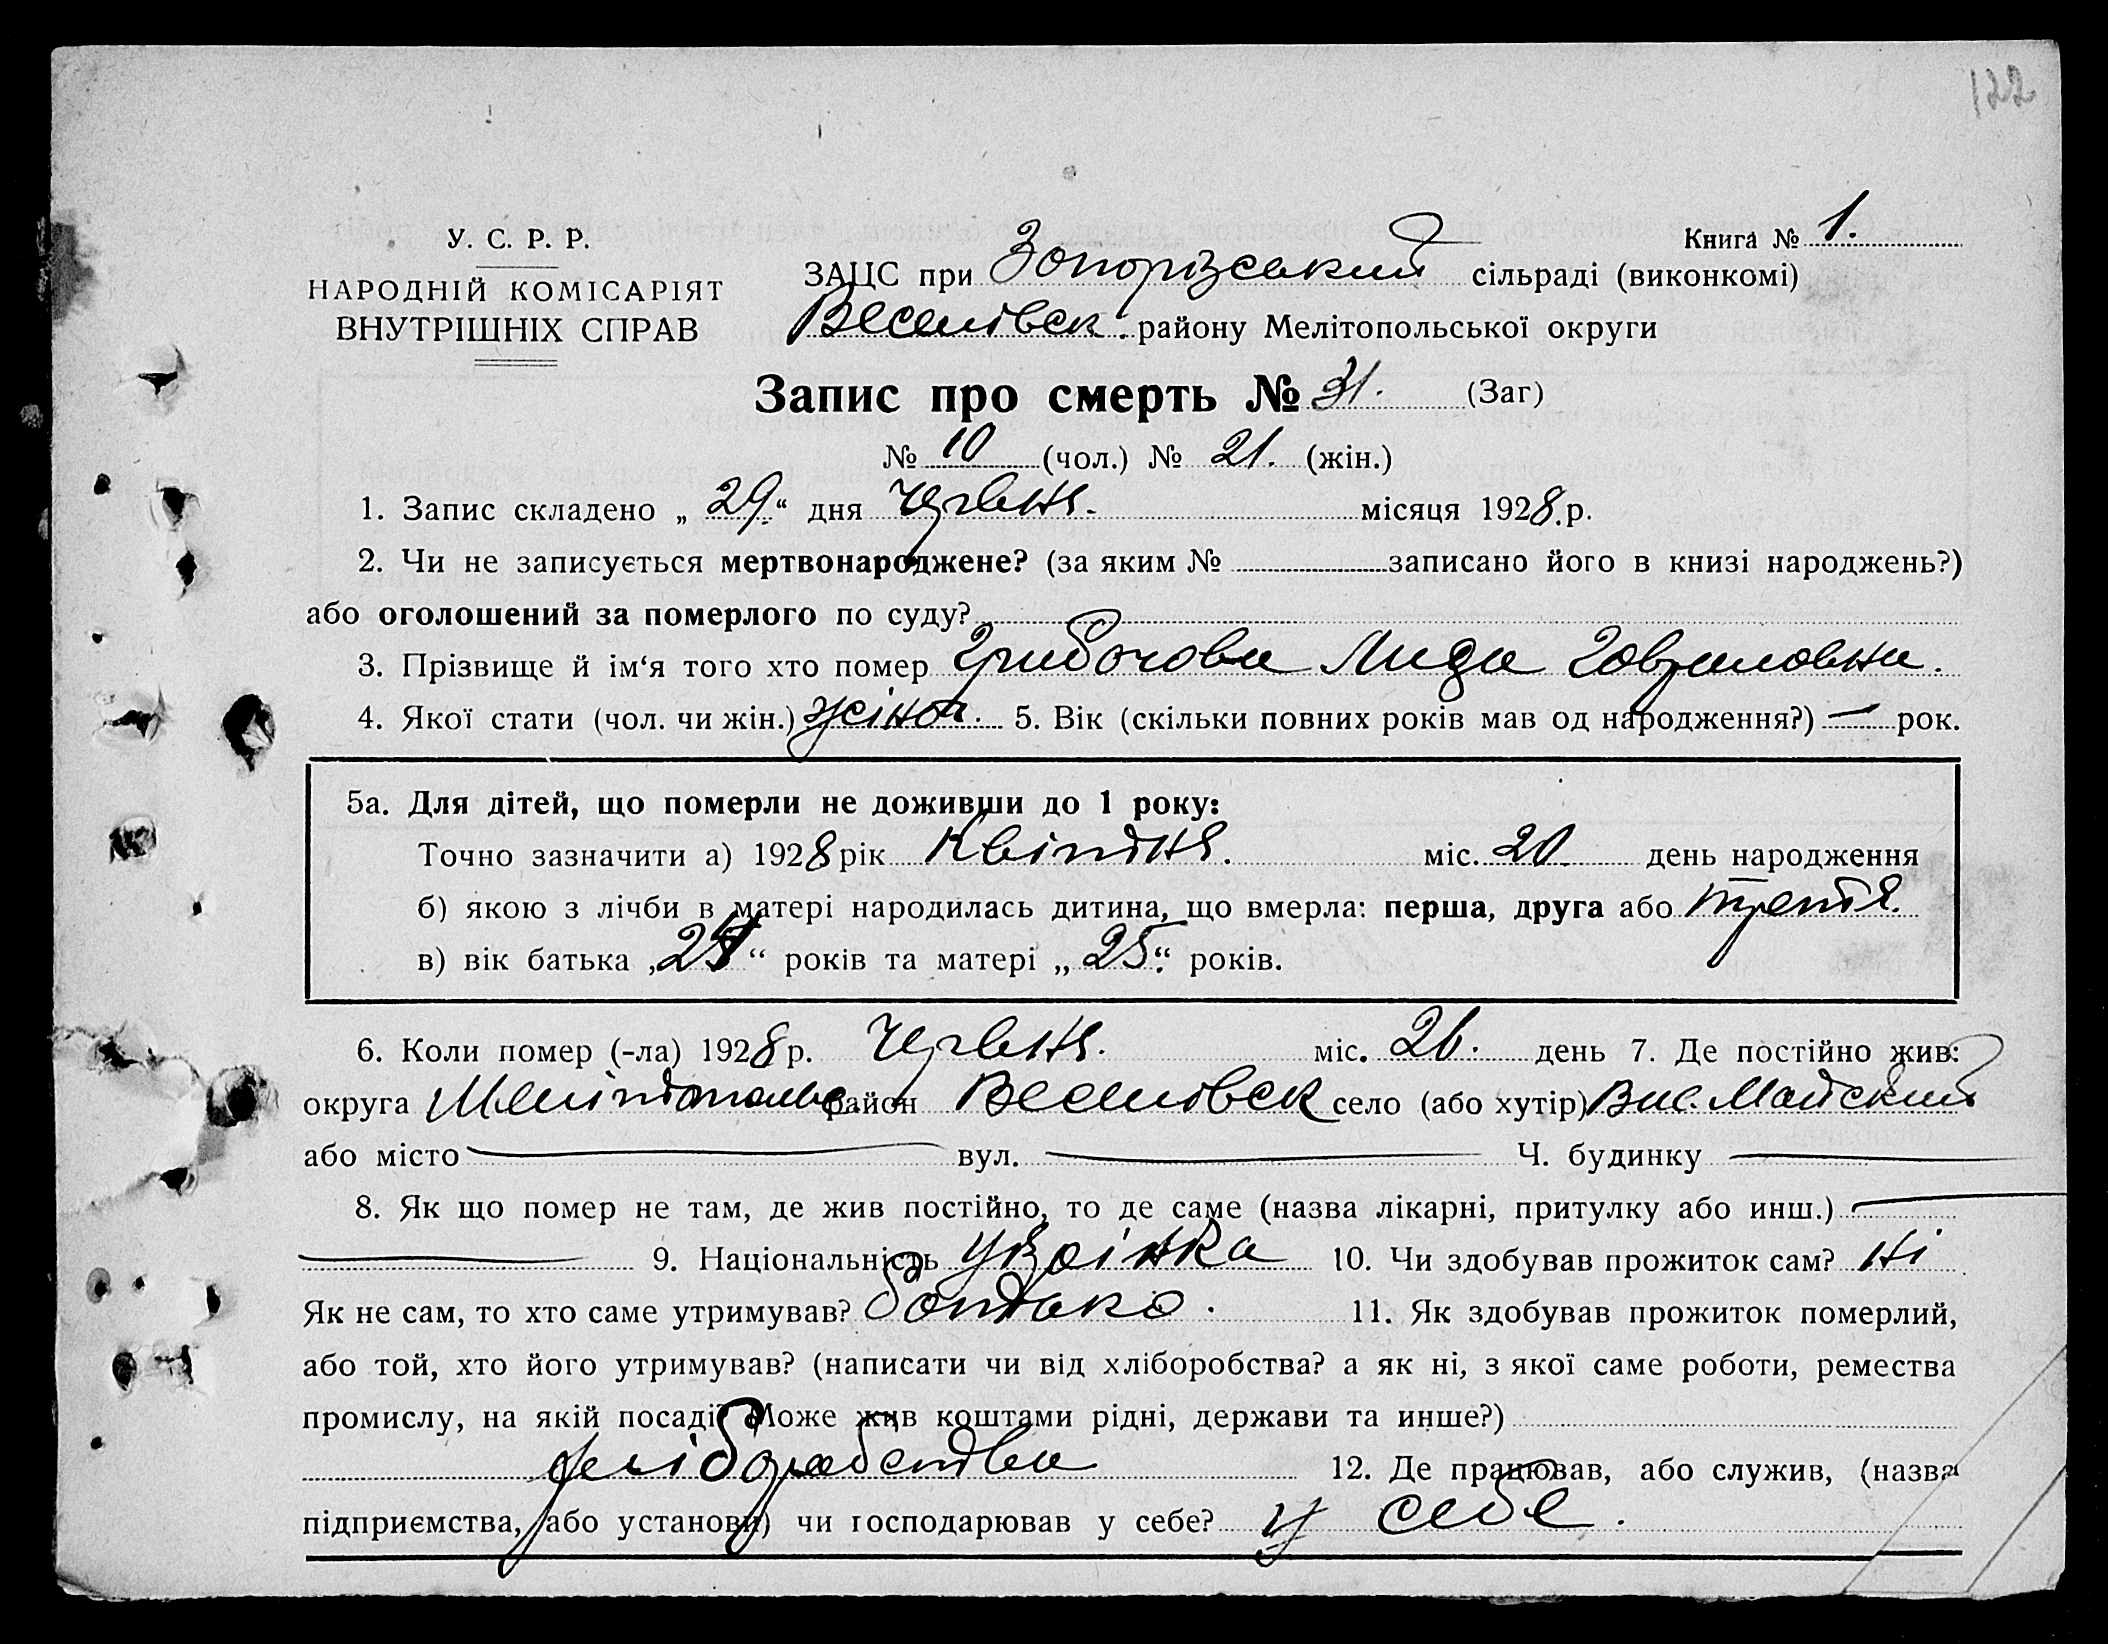 122
У. С. Р. Р.
НАРОДНІЙ КОМІСАРІЯТ
ВНУТРІШНІХ СПРАВ
Книга № 1.
ЗАЦС при Запорізський сільраді (виконкомі)
Веселовск. району Мелітопольської округи
Запис про смерть № 31. (Заг)
№ 10 (чол.) № 21. (жін.)
1. Запис складено „ 29. “ дня червня. місяця 1928. р.
2. Чи не записується мертвонароджене? (за яким № записано його в книзі народжень?)
або оголошений за померлого по суду?
3. Прізвище й ім‘я того хто помер Грибачова Лида Говриловна.
4. Якої стати (чол. чи жін.) жіноч. 5. Вік (скільки повних років мав од народження?) — рок.
5а. Для дітей, що померли не доживши до 1 року:
Точно зазначити а) 1928 рік Квітня. міс. 20. день народження
б) якою з лічби в матері народилась дитина, що вмерла: перша, друга або третя.
в) вік батька „ “ років та матері „ 25 “ років.
6. Коли помер (-ла) 1928 р. червня. міс. 26. день 7. Де постійно жив:
округа Мелітопольс район Веселовск село (або хутір) Вис. Майский
або місто — вул. — Ч. будинку —
8. Як що помер не там, де жив постійно, то де саме (назва лікарні, притулку або инш.) —
— 9. Національність Украінка 10. Чи здобував прожиток сам? ні
Як не сам, то хто саме утримував? батько. 11. Як здобував прожиток померлий,
або той, хто його утримував? (написати чи від хліборобства? а як ні, з якої саме роботи, ремества
промислу, на якій посаді? Може жив коштами рідні, держави та инше?)
хліборобства 12. Де працював, або служив, (назва
підприємства, або установи) чи господарював у себе? у себе.